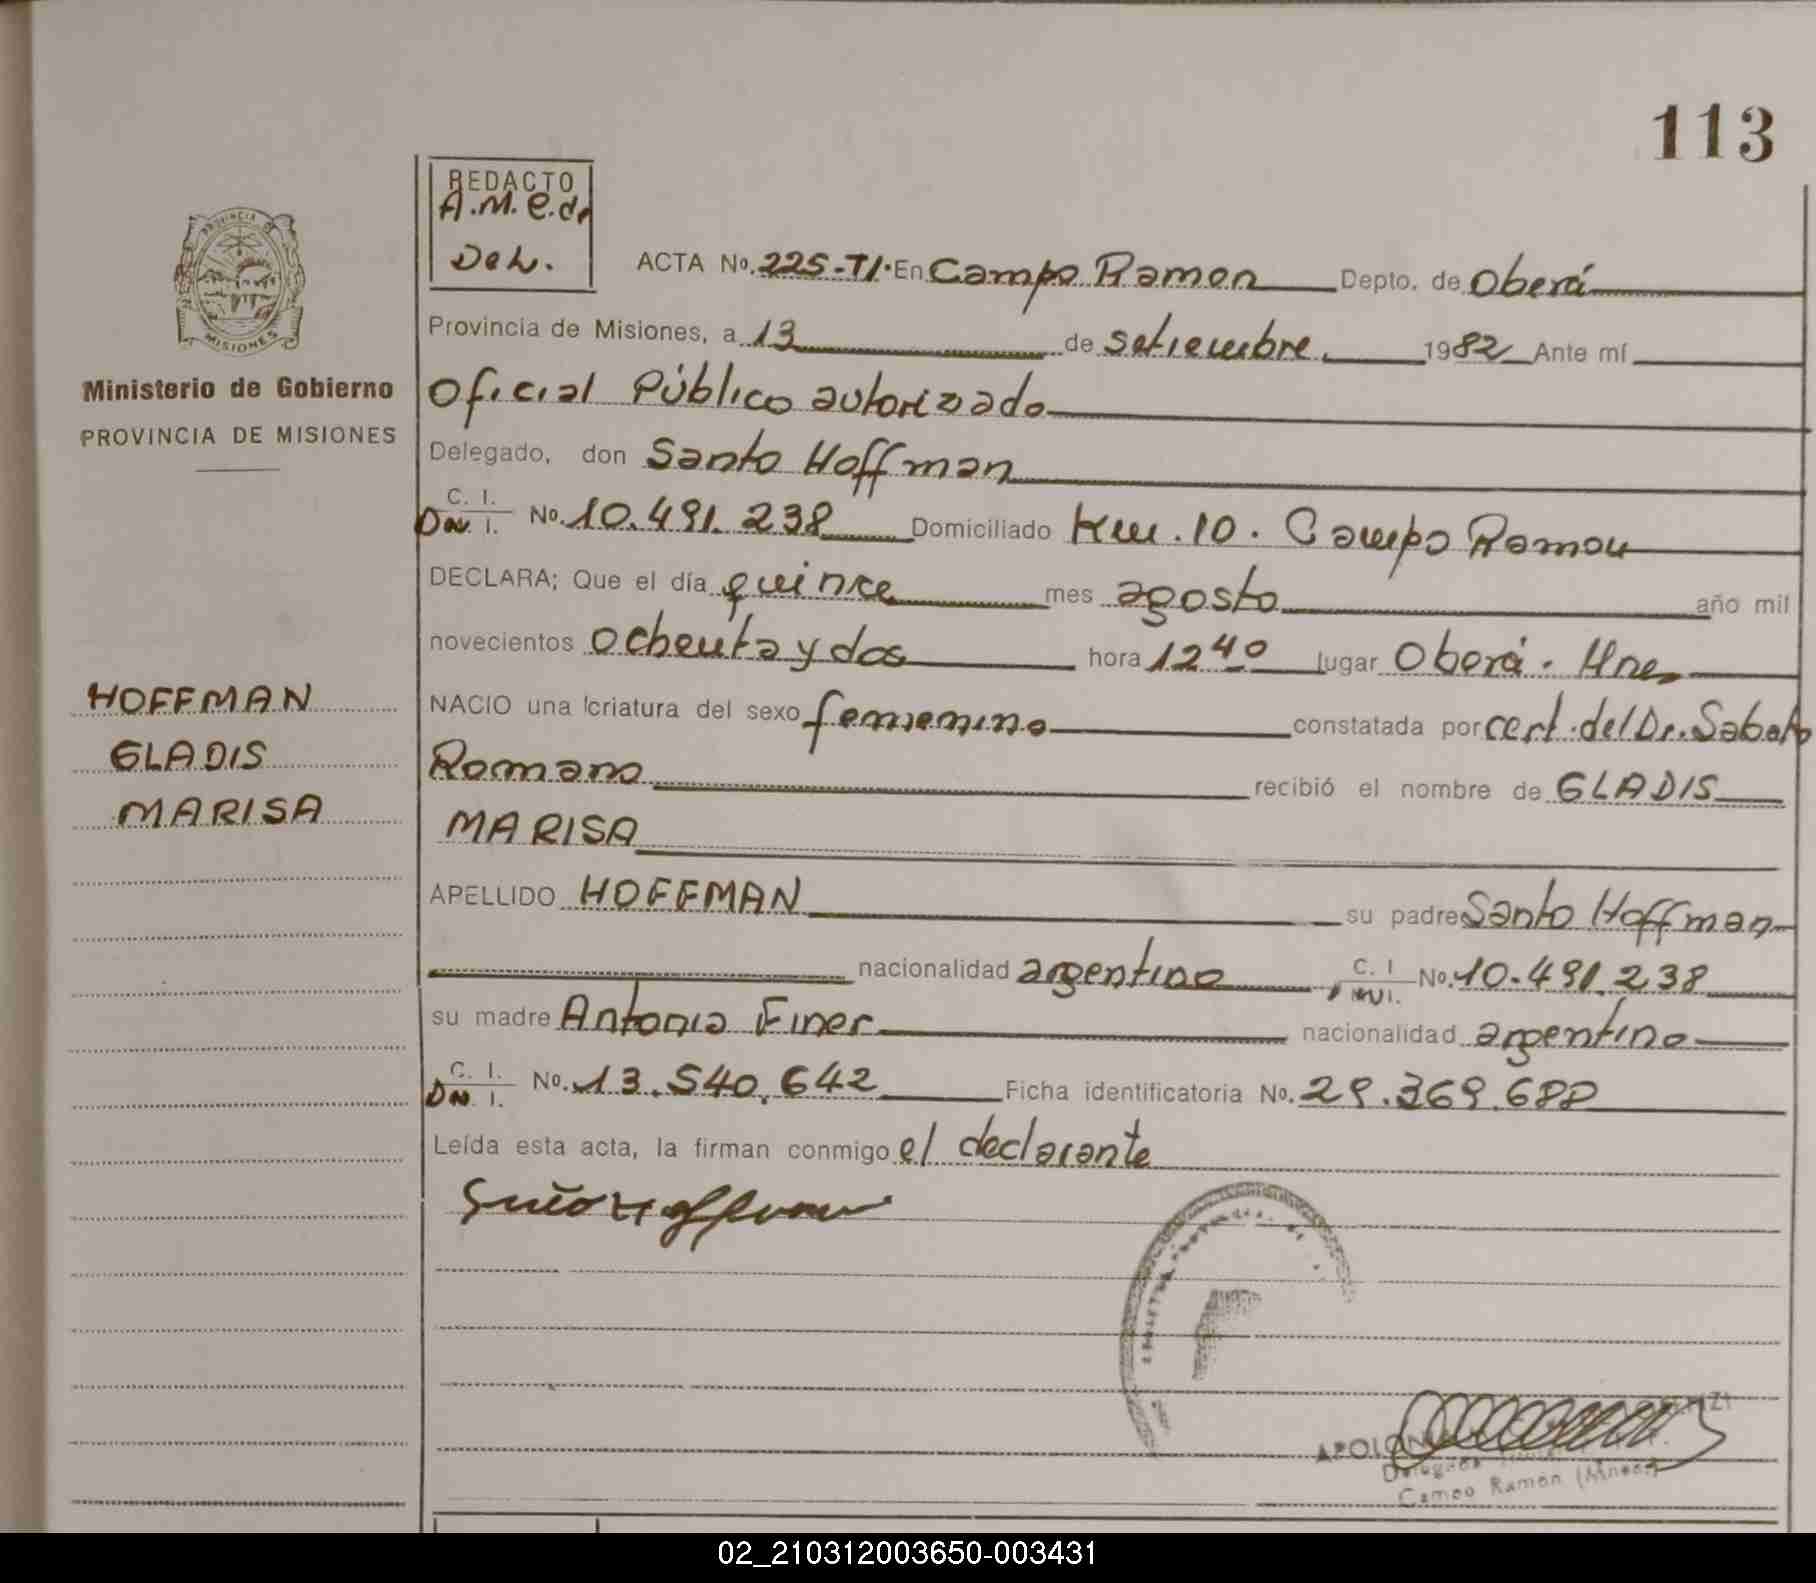 113
REDACTO
A.M.C.d.
Del.
ACTA No. 225-TI. En Campo Ramon Depto. de Oberá
Provincia de Misiones, a 13 de setiembre 1982 Ante mí
Oficial Público autorizado
Delegado, don Santo Hoffman
C. I.
D.N. I. No. 10.491.238 Domiciliado Km. 10. Campo Ramon
DECLARA; Que el día quince mes agosto año mil
novecientos ochenta y dos hora 12 40 lugar Oberá. Mnes
NACIO una criatura del sexo femenino constatada por cert. del Dr. Sabato
Romano recibió el nombre de GLADIS
MARISA
APELLIDO HOFFMAN su padre Santo Hoffman
nacionalidad argentino C. I No. 10.491.238
su madre Antonia Finer nacionalidad argentina
C. I.
D.N. I. No. 13.540.642 Ficha identificatoria No. 29.369.688
Leída esta acta, la firman conmigo el declarante
PROVINCIA DE
MISIONES
Ministerio de Gobierno
PROVINCIA DE MISIONES
HOFFMAN
GLADIS
MARISA
Campo Ramón (Mnes.)
02_210312003650-003431